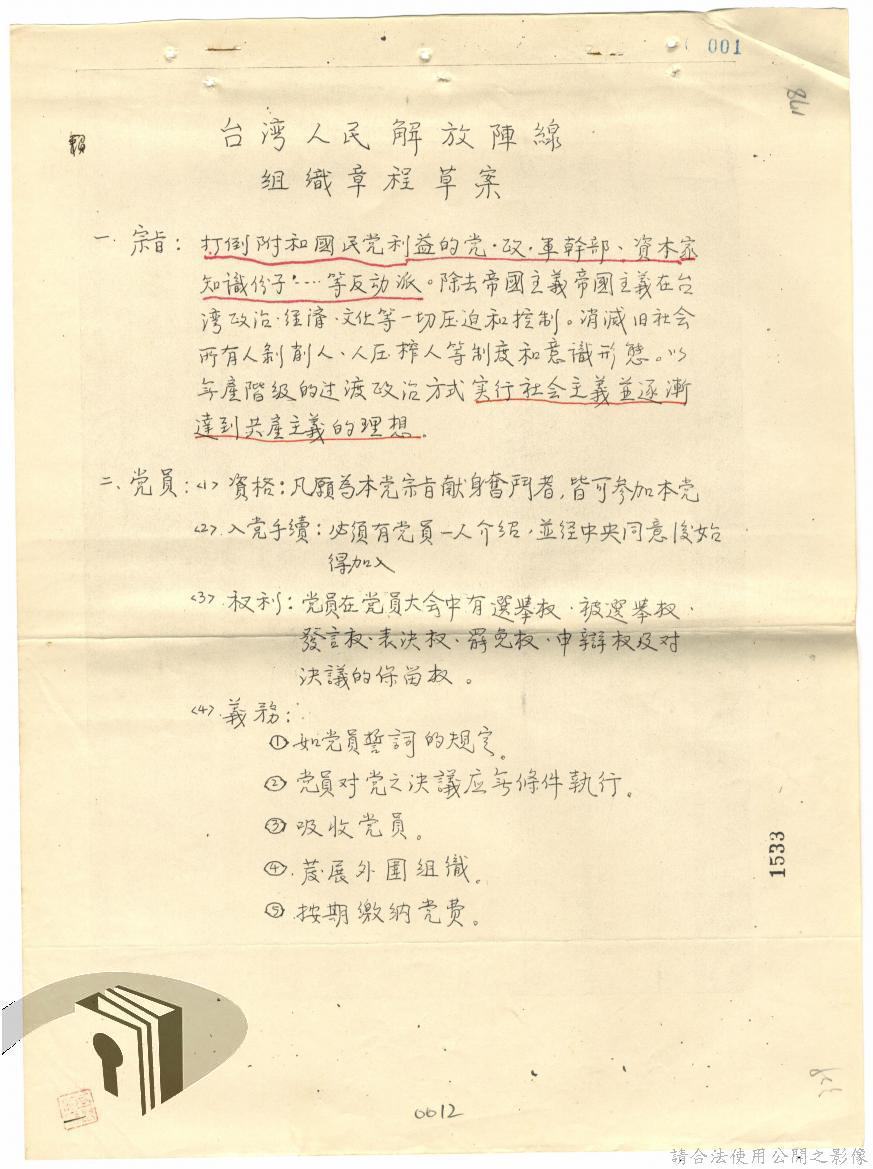 001
台湾人民解放陣線
組織章程草案
一. 宗旨: 打倒附和國民党利益的党·政·軍幹部、資本家
知識份子……等反动派。除去帝國主義帝國主義在台
湾政治·経濟·文化等一切压迫和控制。消滅旧社会
所有人剝削人、人压榨人等制度和意識形態。以
年產階級的过渡政治方式实行社会主義並逐漸
達到共產主義的理想。
二、党員:<1>資格:凡願為本党宗旨献身奮鬥者,皆可參加本党
<2>.入党手續:必須有党員一人介紹,並経中央同意後始
得加入
<3>.权利:党員在党員大会中有選舉权、被選舉权、
發言权、表决权、罷免权、申辯权及对
決議的保留权。
<4>.義務:
①如党員誓詞的規定。
②党員对党之決議应無條件執行。
③吸收党員。
④.發展外圍組織。
⑤.按期繳纳党費。
1533
0012
請合法使用公開之影像